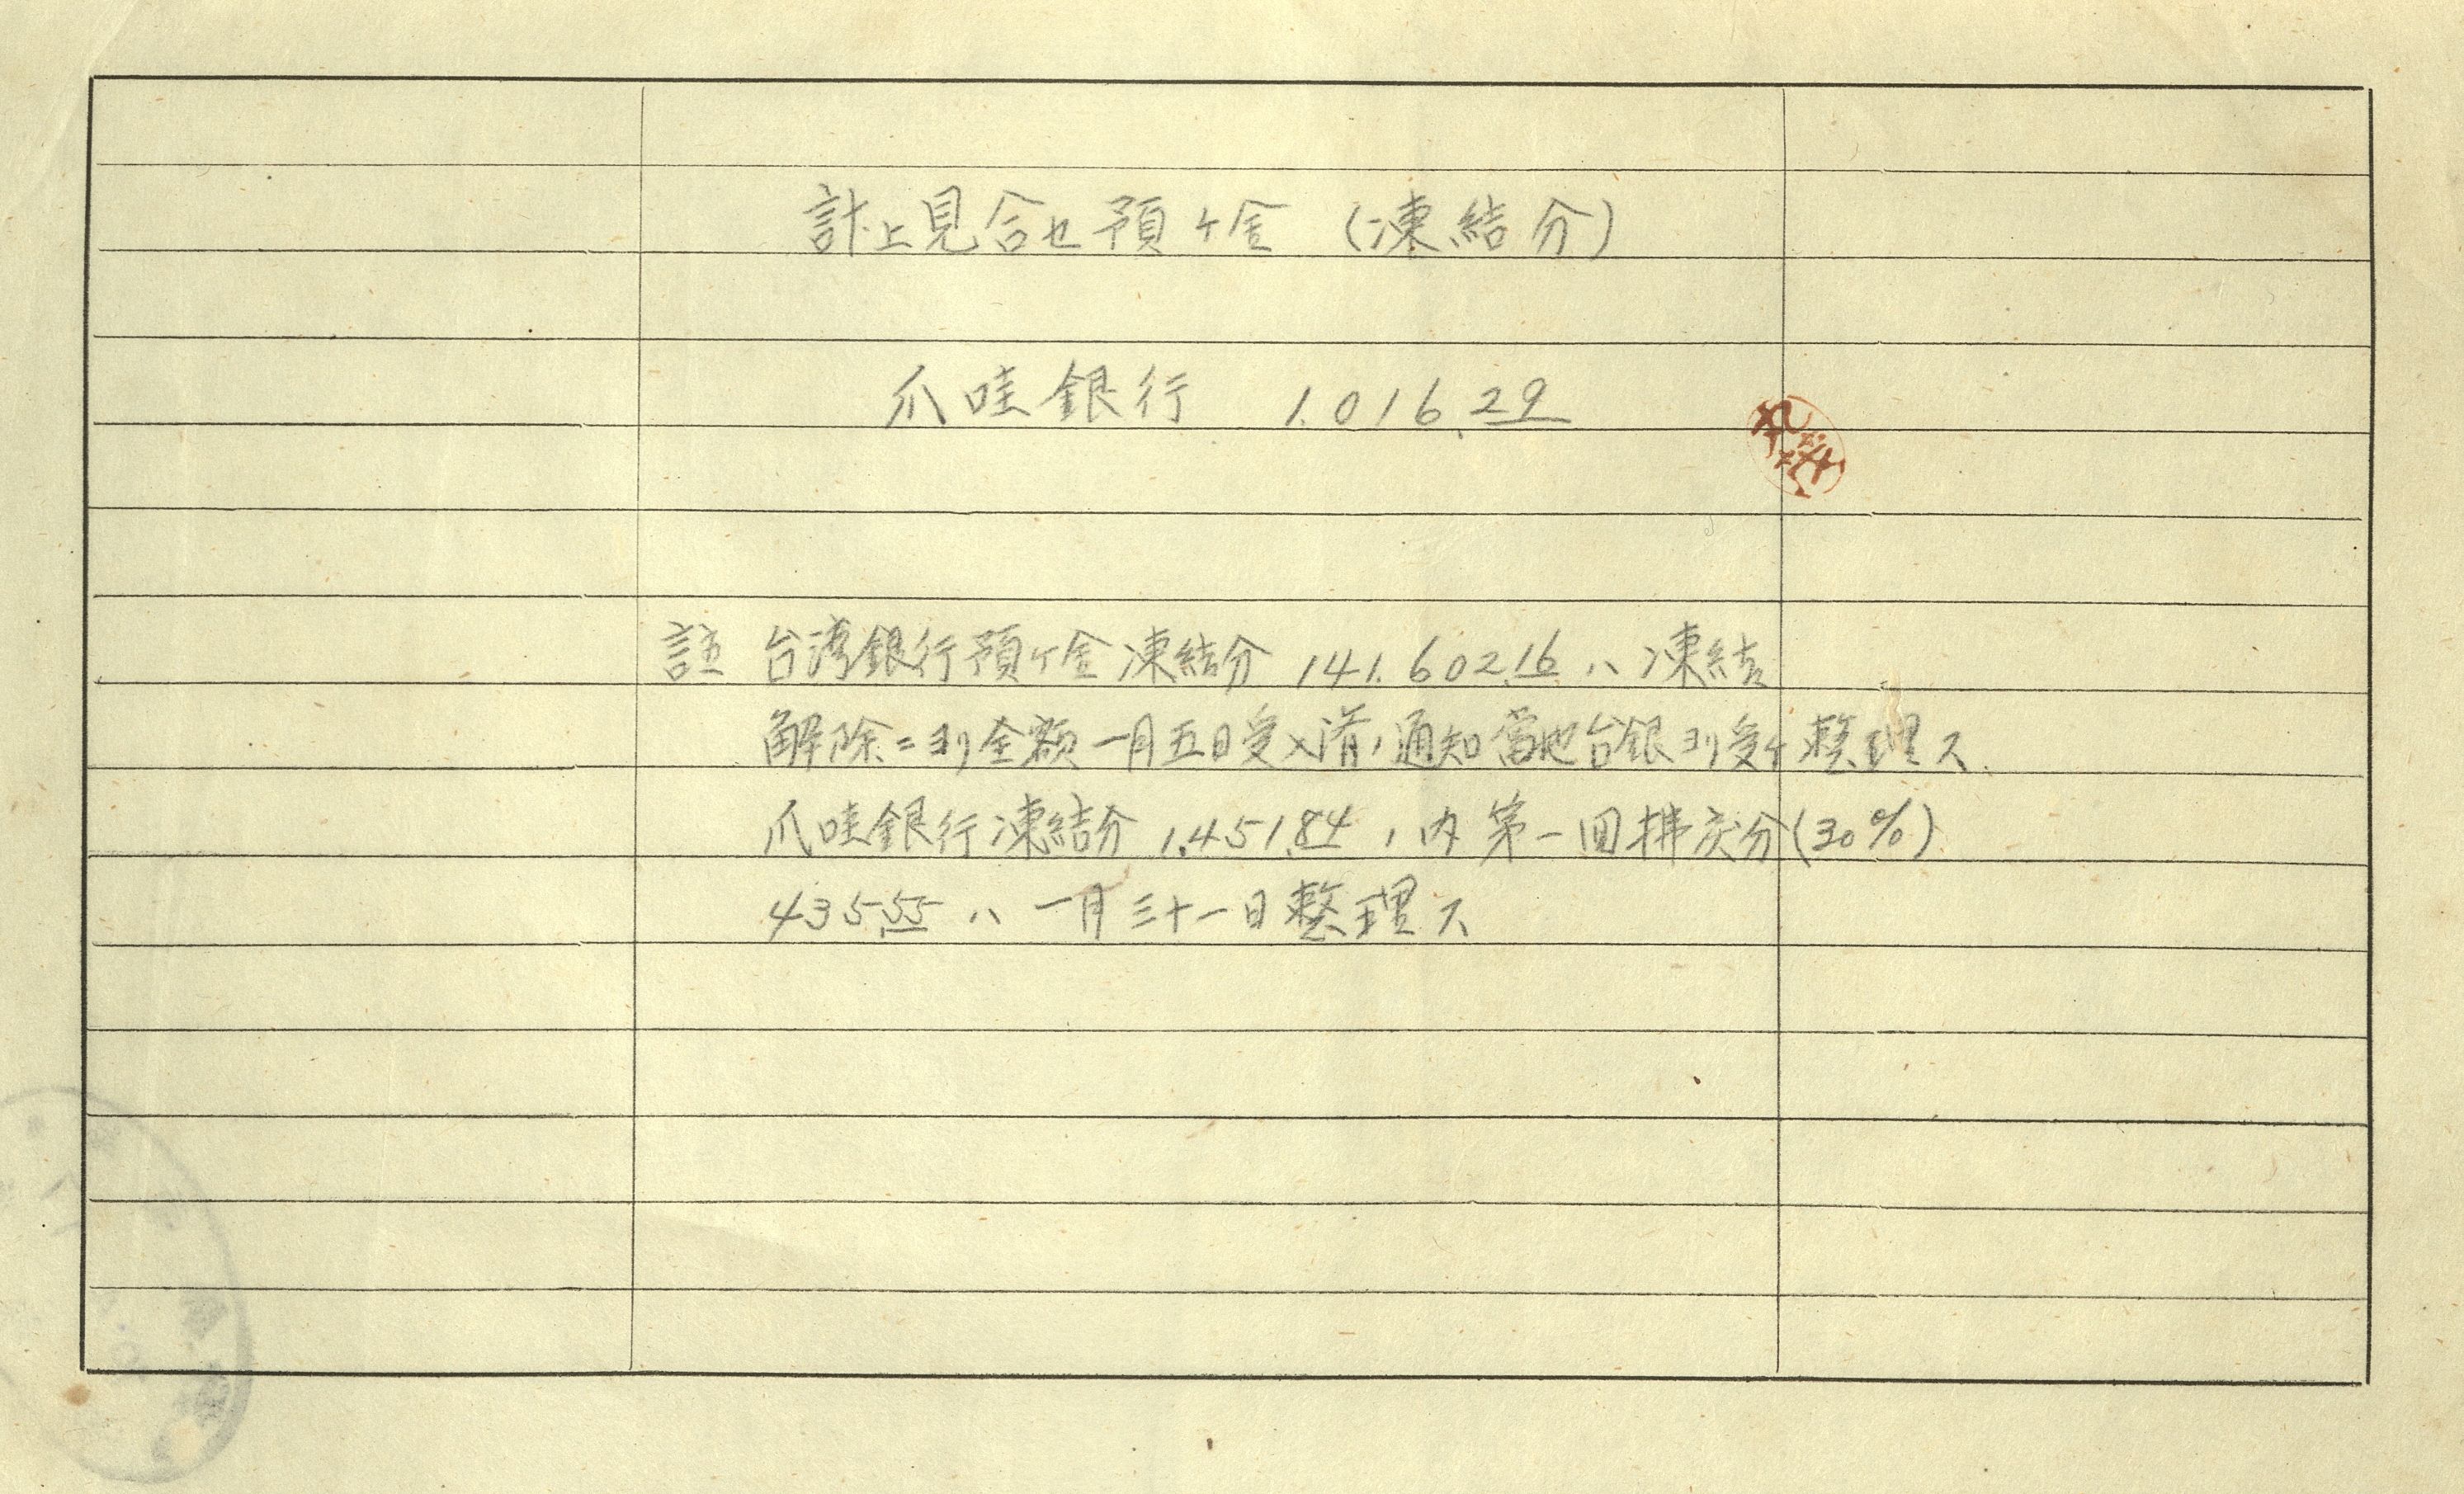 計上見合セ預ケ金 (凍結分)
爪哇銀行 1.016.29
註 台湾銀行預ケ金凍結分 141.602.16 ハ凍結
解除ニヨリ全額一月五日受入済ノ通知當地台銀ヨリ受ケ整理ス.
爪哇銀行凍結分 1.451.84 ノ内 第一回拂戻分(30%)
435.55 ハ 一月三十一日整理ス